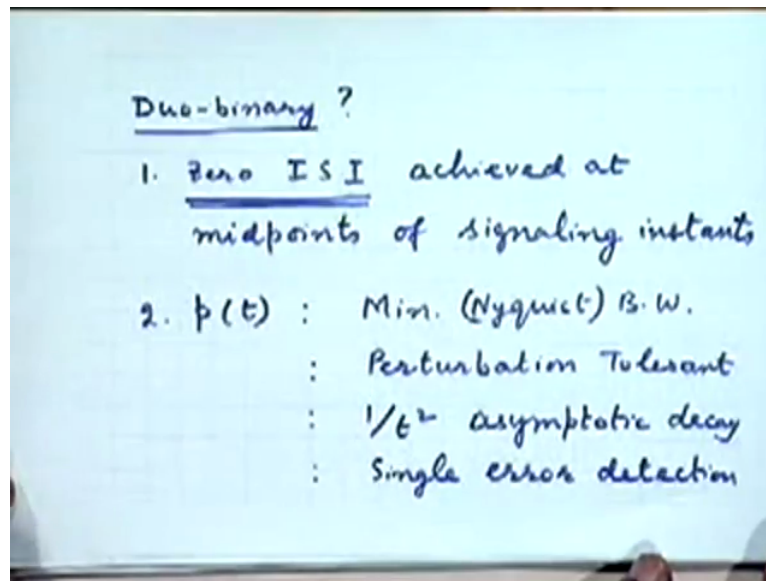 Duo-binary ?
1. Zero ISI achieved at
midpoints of signaling instants
2. p(t) : Min. (Nyquist) B.W.
: Perturbation Tolerant
: 1/t² asymptotic decay
: Single error detection